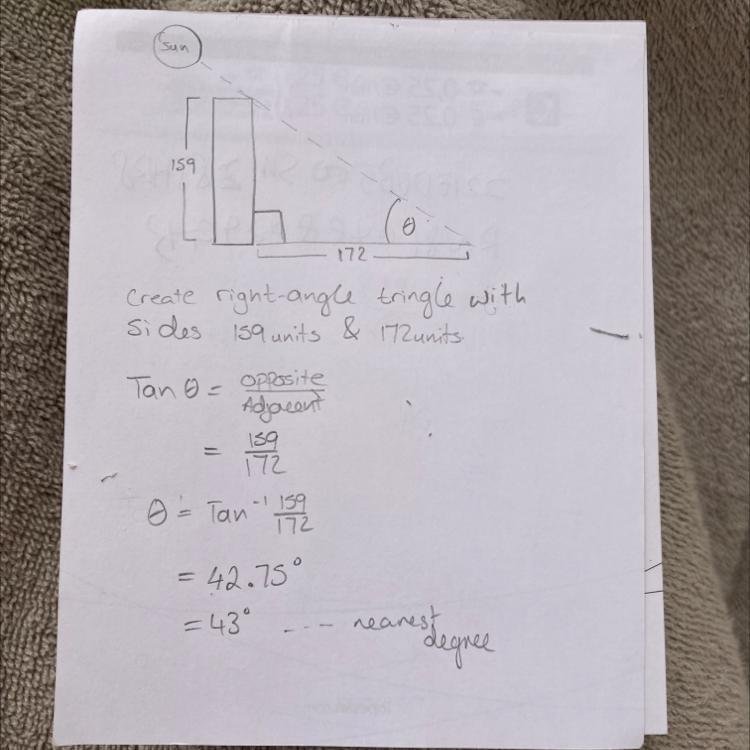 Sun
159
θ
172
Create right-angle tringle with
sides 159 units & 172 units
Tan θ = Opposite / Adjacent
= 159 / 172
θ = Tan⁻¹ 159 / 172
= 42.75°
= 43° --- nearest
degree